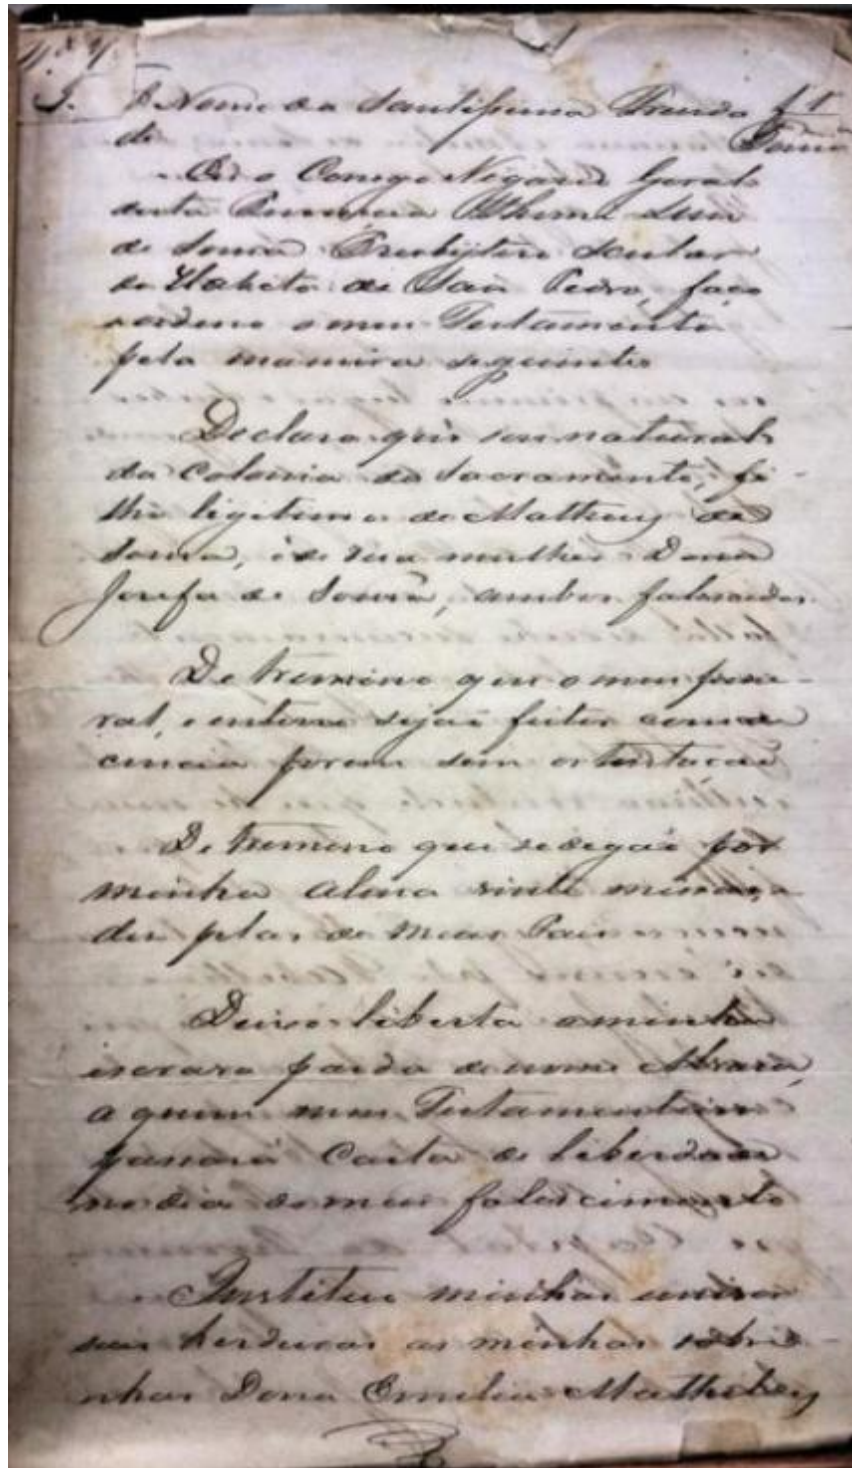 Nome da Santissima Trinda
de
Eu o Conego Vigario Geral
desta Provincia Thomé Luis
de Souza Presbytero Secular
do Habito de São Pedro, faço
e ordeno o meu Testamento
pela maneira seguinte
Declaro que sou natural
da Colonia do Sacramento, fi-
lho legitimo de Matheus de
Souza, e de sua mulher Dona
Josefa de Souza, ambos falescidos
Detremino que o meu fune-
ral, e enterro sejão feitos com de
cencia porem sem ostentação
Detremino que se digão por
minha alma vinte missas, e
dez pelas de meus Pais
Deixo liberta a minha
escrava parda de nome
a quem meu Testamenteiro
passará Carta de liberdade
no dia do meu falescimento
Instituo minhas univer
saes herdeiras as minhas sobri-
nhas Dona Emilia